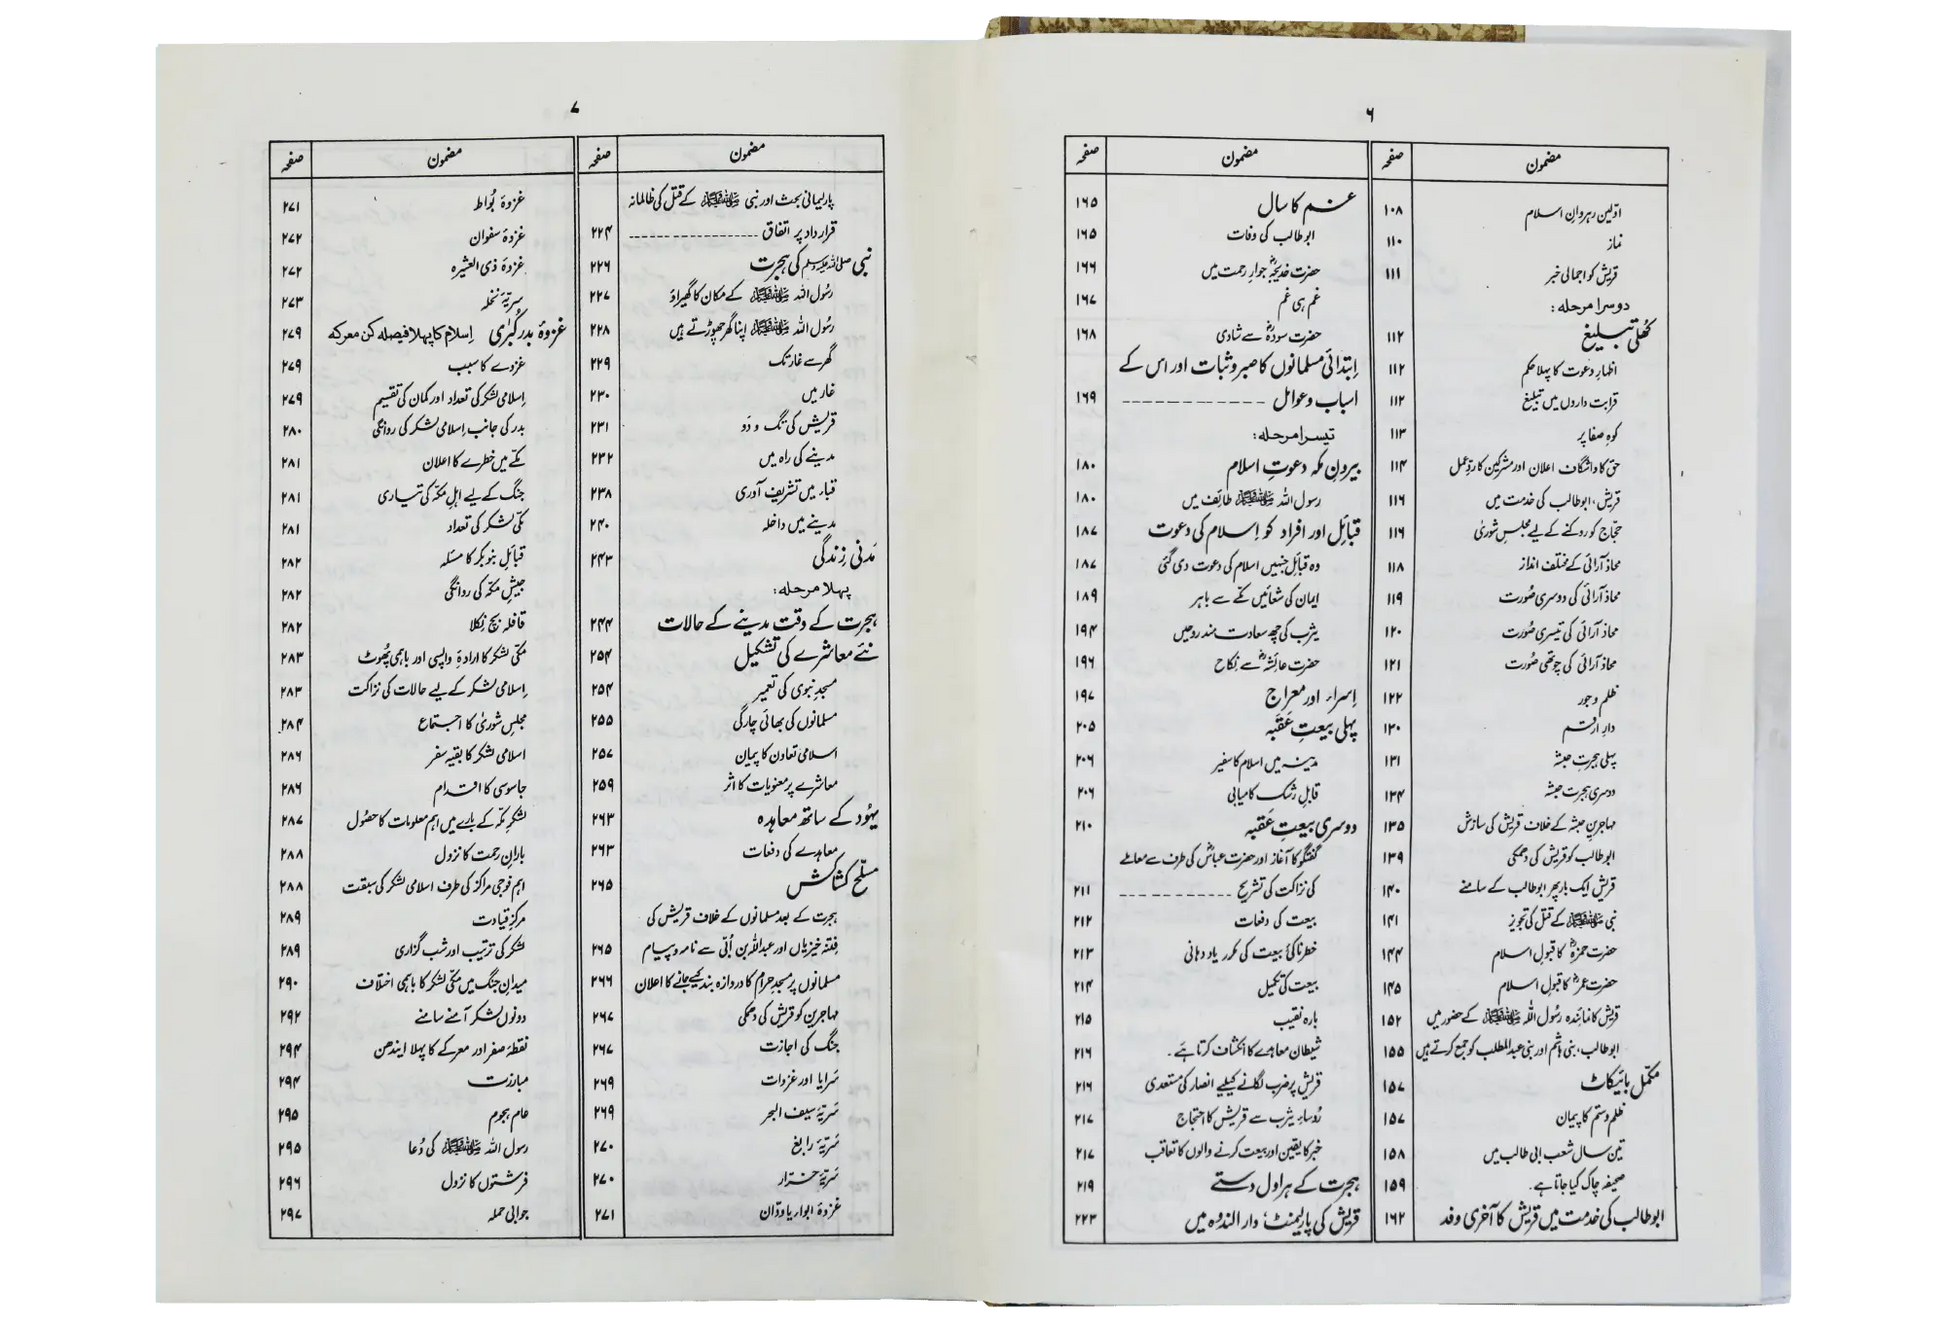 ٦
مضمون صفحہ
اوّلین رہروانِ اسلام ۱۰۸
نماز ۱۱۰
قریش کو اجمالی خبر ۱۱۱
دوسرا مرحلہ:
کھُلی تبلیغ ۱۱۲
اظہارِ دعوت کا پہلا حکم ۱۱۲
قرابت داروں میں تبلیغ ۱۱۲
کوہِ صفا پر ۱۱۳
حق کا واشگاف اعلان اور مشرکین کا ردِّ عمل ۱۱۴
قریش، ابوطالب کی خدمت میں ۱۱۶
حجّاج کو روکنے کے لیے مجلسِ شوریٰ ۱۱۶
محاذ آرائی کے مختلف انداز ۱۱۸
محاذ آرائی کی دوسری صُورت ۱۱۹
محاذ آرائی کی تیسری صُورت ۱۲۰
محاذ آرائی کی چوتھی صُورت ۱۲۱
ظلم و جور ۱۲۲
دارِ ارقم ۱۳۰
پہلی ہجرتِ حبشہ ۱۳۱
دوسری ہجرتِ حبشہ ۱۳۴
مہاجرینِ حبشہ کے خلاف قریش کی سازش ۱۳۵
ابوطالب کو قریش کی دھمکی ۱۳۹
قریش ایک بار پھر ابوطالب کے سامنے ۱۴۰
نبی ﷺ کے قتل کی تجویز ۱۴۱
حضرت حمزہؓ کا قبولِ اسلام ۱۴۴
حضرت عمرؓ کا قبولِ اسلام ۱۴۵
قریش کا نمائندہ رسُول اللہ ﷺ کے حضور میں ۱۵۲
ابوطالب، بنی ہاشم اور بنی عبدالمطلب کو جمع کرتے ہیں ۱۵۵
مکمّل بائیکاٹ ۱۵۷
ظلم و ستم کا پیمان ۱۵۷
تین سال شعب ابی طالب میں ۱۵۸
صحیفہ چاک کیا جاتا ہے۔ ۱۵۹
ابوطالب کی خدمت میں قریش کا آخری وفد ۱۶۲
مضمون صفحہ
غم کا سال ۱۶۵
ابوطالب کی وفات ۱۶۵
حضرت خدیجہؓ جوارِ رحمت میں ۱۶۶
غم ہی غم ۱۶۷
حضرت سودہؓ سے شادی ۱۶۸
اِبتدائی مسلمانوں کا صبر و ثبات اور اس کے
اسباب و عوامل ۱۶۹
تیسرا مرحلہ:
بیرونِ مکہ دعوتِ اسلام ۱۸۰
رسول اللہ ﷺ طائف میں ۱۸۰
قبائل اور افراد کو اِسلام کی دعوت ۱۸۷
وہ قبائل جنہیں اسلام کی دعوت دی گئی ۱۸۷
ایمان کی شعائیں مکّے سے باہر ۱۸۹
یثرب کی چھ سعادت مند روحیں ۱۹۴
حضرت عائشہؓ سے نکاح ۱۹۶
اِسراء اور معراج ۱۹۷
پہلی بیعتِ عَقَبہ ۲۰۵
مدینہ میں اسلام کا سفیر ۲۰۶
قابلِ رشک کامیابی ۲۰۶
دوسری بیعتِ عَقَبہ ۲۱۰
گفتگو کا آغاز اور حضرت عباسؓ کی طرف سے معاملے
کی نزاکت کی تشریح ۲۱۱
بیعت کی دفعات ۲۱۲
خطرناکیٔ بیعت کی مکرر یاد دہانی ۲۱۳
بیعت کی تکمیل ۲۱۴
بارہ نقیب ۲۱۵
شیطان معاہدے کا انکشاف کرتا ہے۔ ۲۱۶
قریش پر ضرب لگانے کیلیے انصار کی مستعدی ۲۱۶
رُوساءِ یثرب سے قریش کا احتجاج ۲۱۷
خبر کا یقین اور بیعت کرنے والوں کا تعاقب ۲۱۷
ہجرت کے ہراول دستے ۲۱۹
قریش کی پارلیمنٹ، دارالندوہ میں ۲۲۳
۷
مضمون صفحہ
پارلیمانی بحث اور نبی ﷺ کے قتل کی ظالمانہ
قرارداد پر اتفاق ۲۲۴
نبی ﷺ کی ہجرت ۲۲۶
رسُول اللہ ﷺ کے مکان کا گھیراؤ ۲۲۷
رسُول اللہ ﷺ اپنا گھر چھوڑتے ہیں ۲۲۸
گھر سے غار تک ۲۲۹
غار میں ۲۳۰
قریش کی تگ و دَو ۲۳۱
مدینے کی راہ میں ۲۳۲
قباء میں تشریف آوری ۲۳۸
مدینے میں داخلہ ۲۴۰
مَدنی زندگی ۲۴۳
پہلا مرحلہ:
ہجرت کے وقت مدینے کے حالات ۲۴۴
نئے معاشرے کی تشکیل ۲۵۴
مسجدِ نبوی کی تعمیر ۲۵۴
مسلمانوں کی بھائی چارگی ۲۵۵
اسلامی تعاون کا پیمان ۲۵۷
معاشرے پر معنویات کا اثر ۲۵۹
یہُود کے ساتھ معاہدہ ۲۶۳
معاہدے کی دفعات ۲۶۳
مسلّح کشاکش ۲۶۵
ہجرت کے بعد مسلمانوں کے خلاف قریش کی
فِتنہ خیزیاں اور عبداللہ بن اُبَی سے نامہ و پیام ۲۶۵
مسلمانوں پر مسجدِ حرام کا دروازہ بند کیے جانے کا اعلان ۲۶۶
مہاجرین کو قریش کی دھمکی ۲۶۷
جنگ کی اجازت ۲۶۷
سَرایا اور غزوات ۲۶۹
سَریّہ سیف البحر ۲۶۹
سَریّہ رابغ ۲۷۰
سَریّہ خرّار ۲۷۰
غزوۂ ابواء یا ودّان ۲۷۱
مضمون صفحہ
غزوۂ بُواط ۲۷۱
غزوۂ سفوان ۲۷۲
غزوۂ ذی العشیرہ ۲۷۲
سریّۂ نخلہ ۲۷۳
غزوۂ بدر کُبریٰ اِسلام کا پہلا فیصلہ کُن معرکہ ۲۷۹
غزوے کا سبب ۲۷۹
اِسلامی لشکر کی تعداد اور کمان کی تقسیم ۲۷۹
بدر کی جانب اِسلامی لشکر کی روانگی ۲۸۰
مکّے میں خطرے کا اعلان ۲۸۱
جنگ کے لیے اہلِ مکّہ کی تیاری ۲۸۱
مکّی لشکر کی تعداد ۲۸۱
قبائلِ بنو بکر کا مسئلہ ۲۸۲
جیشِ مکّہ کی روانگی ۲۸۲
قافلہ بچ نِکلا ۲۸۲
مکّی لشکر کا ارادۂ واپسی اور باہمی پھُوٹ ۲۸۳
اِسلامی لشکر کے لیے حالات کی نزاکت ۲۸۳
مجلسِ شوریٰ کا اجتماع ۲۸۴
اسلامی لشکر کا بقیہ سفر ۲۸۶
جاسوسی کا اقدام ۲۸۶
لشکرِ مکّہ کے بارے میں اہم معلومات کا حصُول ۲۸۷
بارانِ رحمت کا نزول ۲۸۸
اہم فوجی مراکز کی طرف اسلامی لشکر کی سبقت ۲۸۸
مرکزِ قیادت ۲۸۹
لشکر کی ترتیب اور شب گزاری ۲۸۹
میدانِ جنگ میں مکّی لشکر کا باہمی اختلاف ۲۹۰
دونوں لشکر آمنے سامنے ۲۹۲
نقطۂ صفر اور معرکے کا پہلا ایندھن ۲۹۴
مبارزت ۲۹۴
عام ہجوم ۲۹۵
رسول اللہ ﷺ کی دُعا ۲۹۵
فرشتوں کا نزول ۲۹۶
جوابی حملہ ۲۹۷